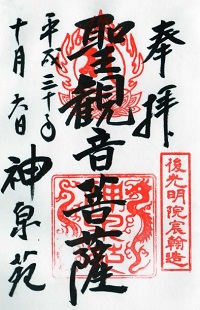 奉拝
聖観音菩薩
後光明院宸翰造
平成三十年
十月六日
神泉苑